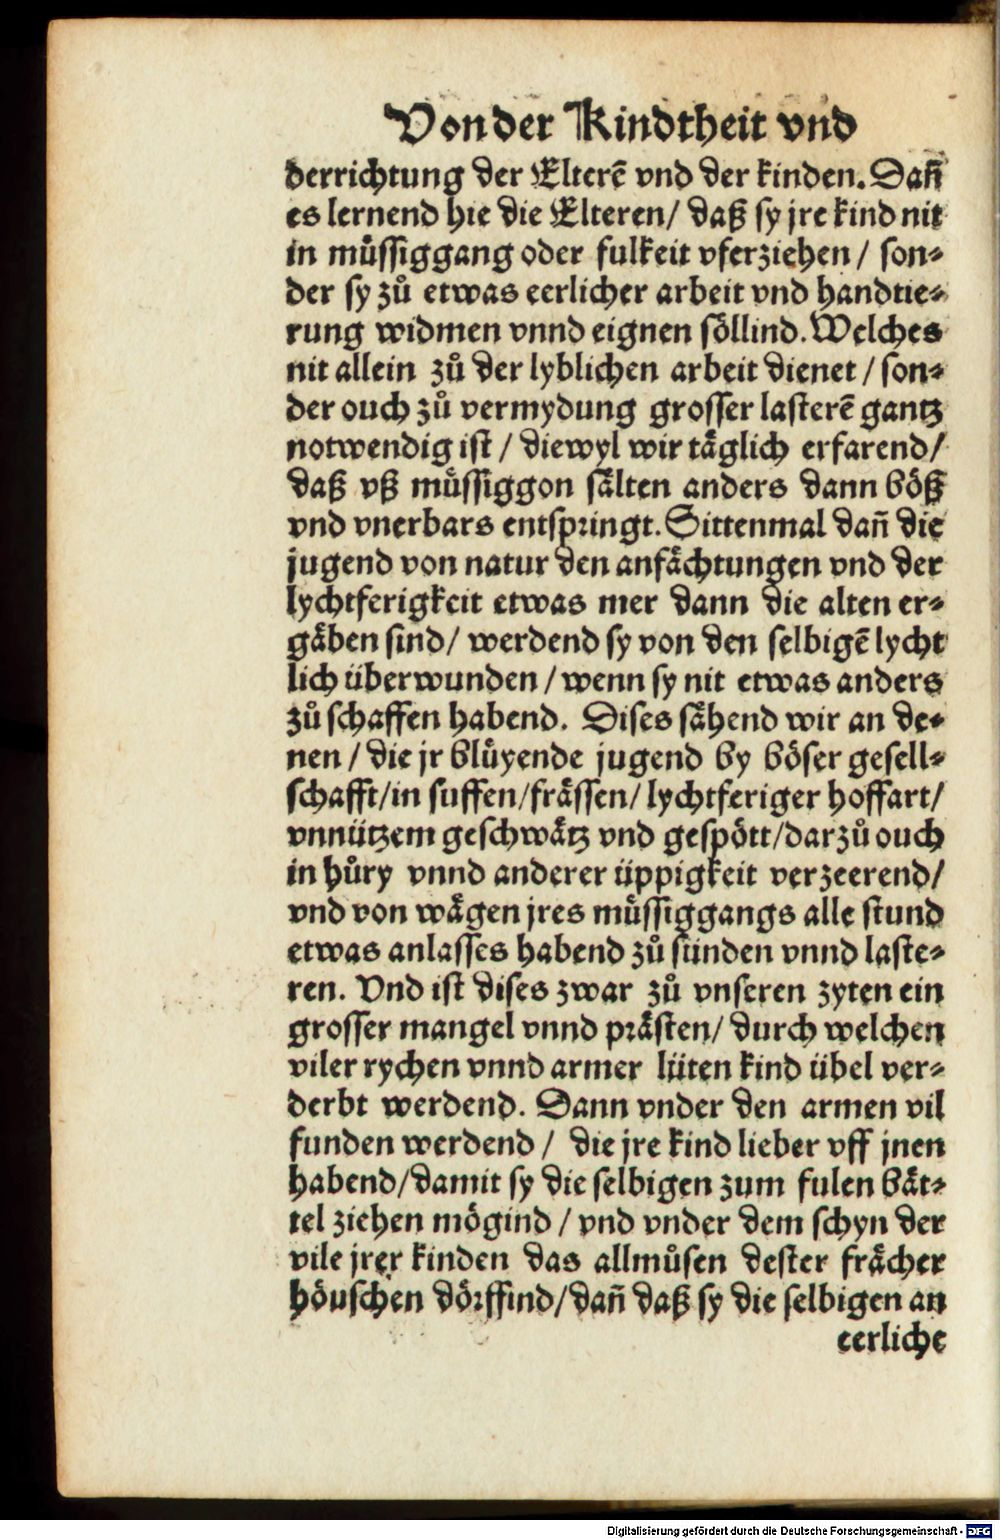 Von der Kindtheit vnd
derrichtung der Elterẽ vnd der kinden. Dañ
es lernend hie die Elteren/ daß sy jre kind nit
in muͤssiggang oder fulkeit vferziehen / son⸗
der sy zuͦ etwas eerlicher arbeit vnd handtie⸗
rung widmen vnnd eignen soͤllind. Welches
nit allein zuͦ der lyblichen arbeit dienet / son⸗
der ouch zuͦ vermydung grosser lasterẽ gantz
notwendig ist / diewyl wir taͤglich erfarend/
daß vß muͤssiggon saͤlten anders dann boͤß
vnd vnerbars entspringt. Sittenmal dañ die
jugend von natur den anfaͤchtungen vnd der
lychtferigkeit etwas mer dann die alten er⸗
gaͤben sind/ werdend sy von den selbigẽ lycht
lich überwunden / wenn sy nit etwas anders
zuͦ schaffen habend. Dises saͤhend wir an de⸗
nen / die jr bluͤyende jugend by boͤser gesell⸗
schafft/in suffen/fraͤssen/ lychtferiger hoffart/
vnnützem geschwaͤtz vnd gespoͤtt/darzuͦ ouch
in huͦry vnnd anderer üppigkeit verzeerend/
vnd von waͤgen jres muͤssiggangs alle stund
etwas anlasses habend zuͦ sünden vnnd laste⸗
ren. Vnd ist dises zwar zuͦ vnseren zyten ein
grosser mangel vnnd praͤsten/ durch welchen
viler rychen vnnd armer lüten kind übel ver⸗
derbt werdend. Dann vnder den armen vil
funden werdend / die jre kind lieber vff jnen
habend/damit sy die selbigen zum fulen baͤt⸗
tel ziehen moͤgind / vnd vnder dem schyn der
vile jrer kinden das allmuͦsen dester fraͤcher
hoͤuschen doͤrffind/dañ daß sy die selbigen an
eerliche
Digitalisierung gefördert durch die Deutsche Forschungsgemeinschaft - DFG